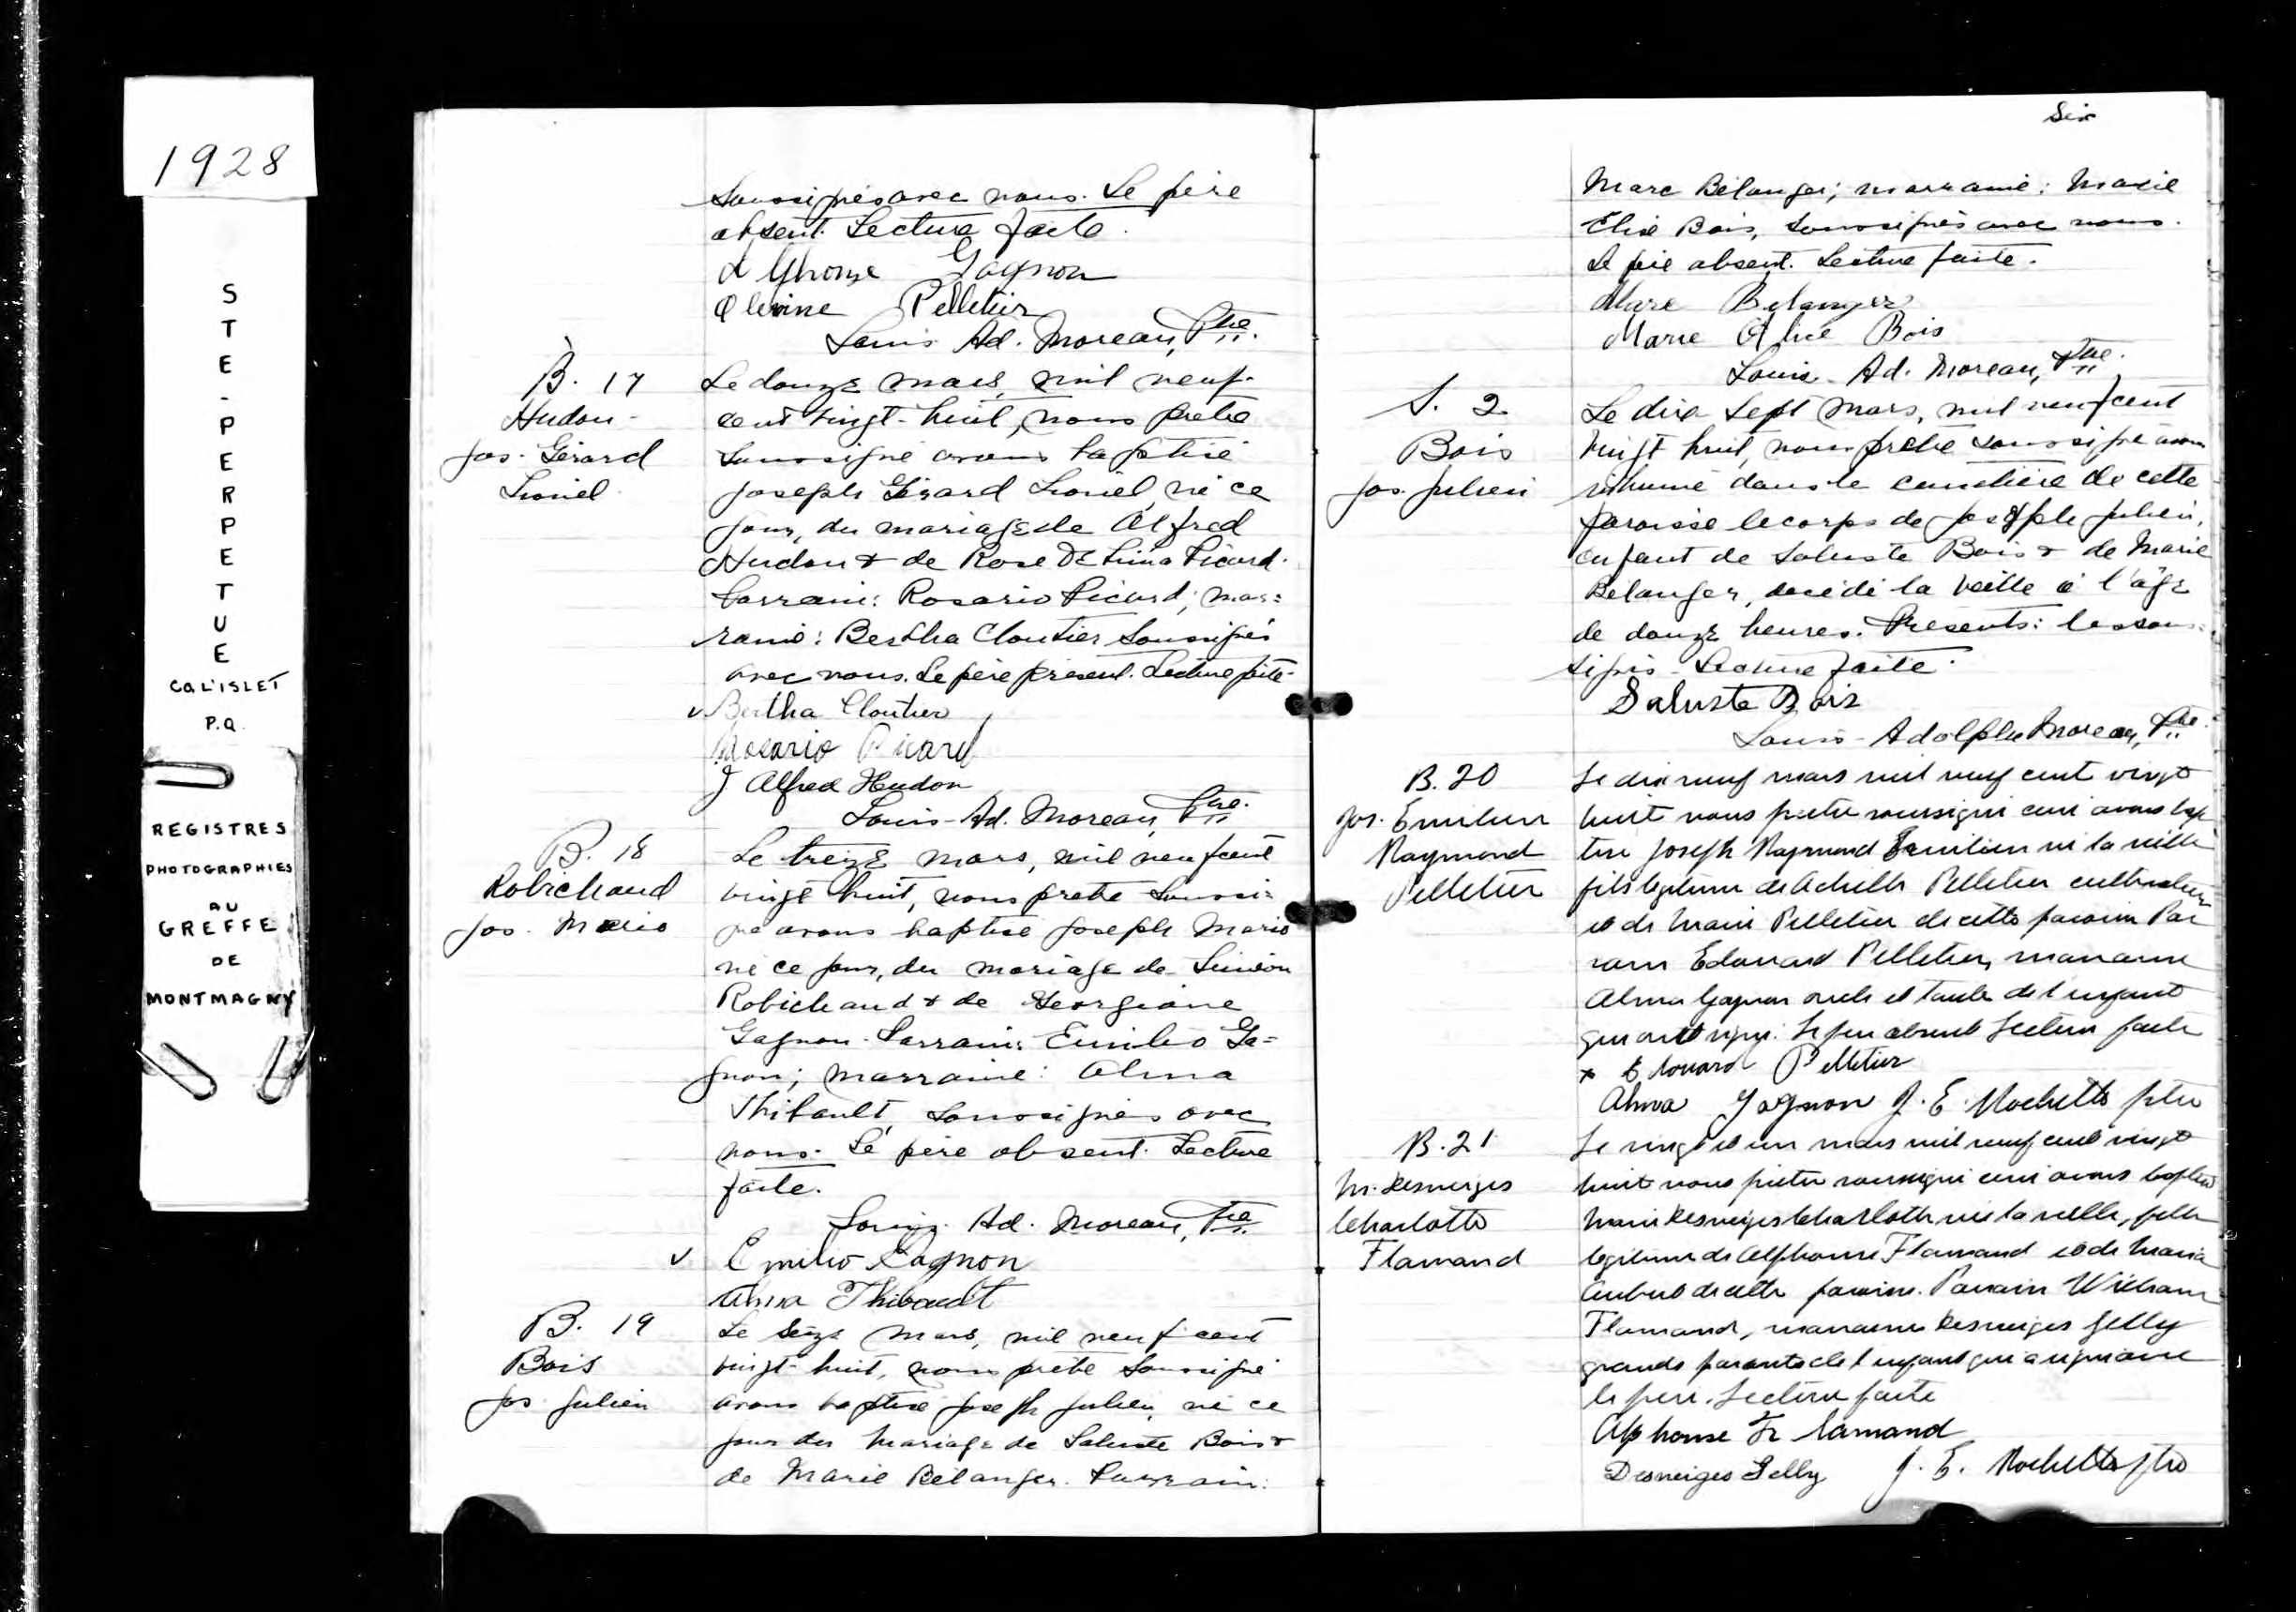 1928
STE-PERPETUE
CO. L'ISLET
P.Q.
REGISTRES
PHOTOGRAPHIES
AU
GREFFE
DE
MONTMAGNY
soussignés avec nous. Le père
absent. Lecture faite.
Gagnon
Pelletier
Louis Ad. Moreau, Ptre.
B. 17
Hudon
Jos. Gérard
Lionel
Le douze mars, mil neuf-
cent vingt-huit, nous prêtre
soussigné avons baptisé
Joseph Gérard Lionel, né ce
jour, du mariage de Alfred
Hudon & de Rose De Lima Picard.
Parrain: Rosario Picard; mar=
raine: Bertha Cloutier soussignés
avec nous. Le père présent. Lecture faite.
Bertha Cloutier
Rosario Picard
J Alfred Hudon
Louis-Ad. Moreau, Ptre.
B. 18
Robichaud
Jos. Mario
Le treize mars, mil neuf cent
vingt huit, nous prêtre soussi=
gné avons baptisé Joseph Mario
né ce jour, du mariage de Siméon
Robichaud & de Georgiane
Gagnon. Parrain: Emilio Ga=
gnon; marraine: Alma
Thibault, soussignés avec
nous. Le père absent. Lecture
faite.
Louis. Ad. Moreau, Ptre.
Emilio Gagnon
Alma Thibault
B. 19
Bois
Jos Julien
Le seize mars, mil neuf cent
vingt-huit, nous prêtre soussigné
avons baptisé Joseph Julien, né ce
jour du mariage de Saluste Bois &
de Marie Bélanger. Parrain:
Six
Marc Bélanger; marraine: Marie
Bois, soussignés avec nous.
Le père absent. Lecture faite.
Marc Belanger
Marie Alice Bois
Louis-Ad. Moreau, Ptre.
S. 2
Bois
Jos. Julien
Le dix sept mars, mil neuf cent
vingt huit, nous prêtre soussigné avons
inhumé dans le cimetière de cette
paroisse le corps de Joseph Julien,
enfant de Saluste Bois & de Marie
Bélanger, décédé la veille à l'âge
de douze heures. Présents: les sous=
signés. Lecture faite.
Saluste Bois
Louis-Adolphe Moreau, Ptre.
B. 20
Jos. Emilien
Raymond
Pelletier
Le dix neuf mars mil neuf cent vingt
huit nous prêtre soussigné curé avons bap
tisé Joseph Raymond Emilien né la veille
fils légitime de Achille Pelletier cultivateur
et de Marie Pelletier de cette paroisse Par
rain Edouard Pelletier, marraine
Alma Gagnon oncle et tante de l'enfant
qui ont signé. Le père absent Lecture faite
x Edouard Pelletier
Alma Gagnon J. E. Rochette ptre
B. 21
M. Desneiges
Charlotte
Flamand
Le vingt et un mars mil neuf cent vingt
huit nous prêtre soussigné curé avons baptisé
Marie Desneiges Charlotte née la veille, fille
légitime de Alphonse Flamand et de Maria
Aubut de cette paroisse. Parrain William
Flamand, marraine Desneiges Gelly
grands parents de l'enfant qui a signé avec
le père. Lecture faite
Alphonse Flamand
Desneiges Gelly J. E. Rochette ptre